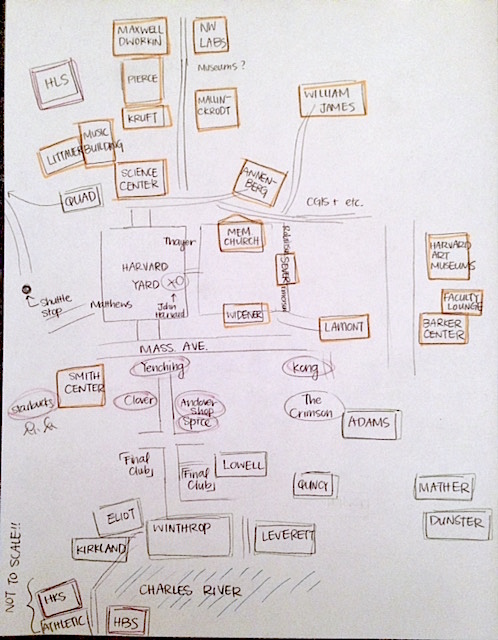 MAXWELL
DWORKIN
NW
LABS
MUSEUMS ?
HLS
PIERCE
MALLIN-
CKRODT
WILLIAM
JAMES
KRUFT
MUSIC
BUILDING
LITTAUER
SCIENCE
CENTER
ANNEN-
BERG
QUAD
CGIS + etc.
Thayer
MEM
CHURCH
SEVER
HARVARD
ART
MUSEUMS
HARVARD
YARD
XO
Shuttle
stop
Matthews
John
Harvard
WIDENER
LAMONT
FACULTY
LOUNGE
BARKER
CENTER
MASS. AVE.
Yenching
Kong
SMITH
CENTER
Starbucks
Clover
Andover
Shop
Spice
The
Crimson
ADAMS
Final
Club
Final
Club
LOWELL
QUINCY
MATHER
ELIOT
WINTHROP
LEVERETT
DUNSTER
KIRKLAND
NOT TO SCALE!!
CHARLES RIVER
HKS
ATHLETIC
HBS